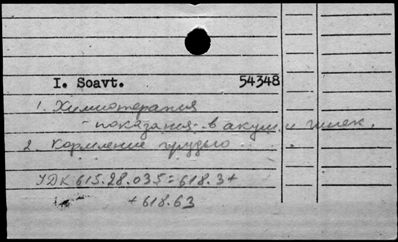 I. Soavt. 54348
1. Химиотерапия
- показания - в акуш. и гинек.
2. Кормление грудью
УДК 615.28.035:618.3+
+618.63